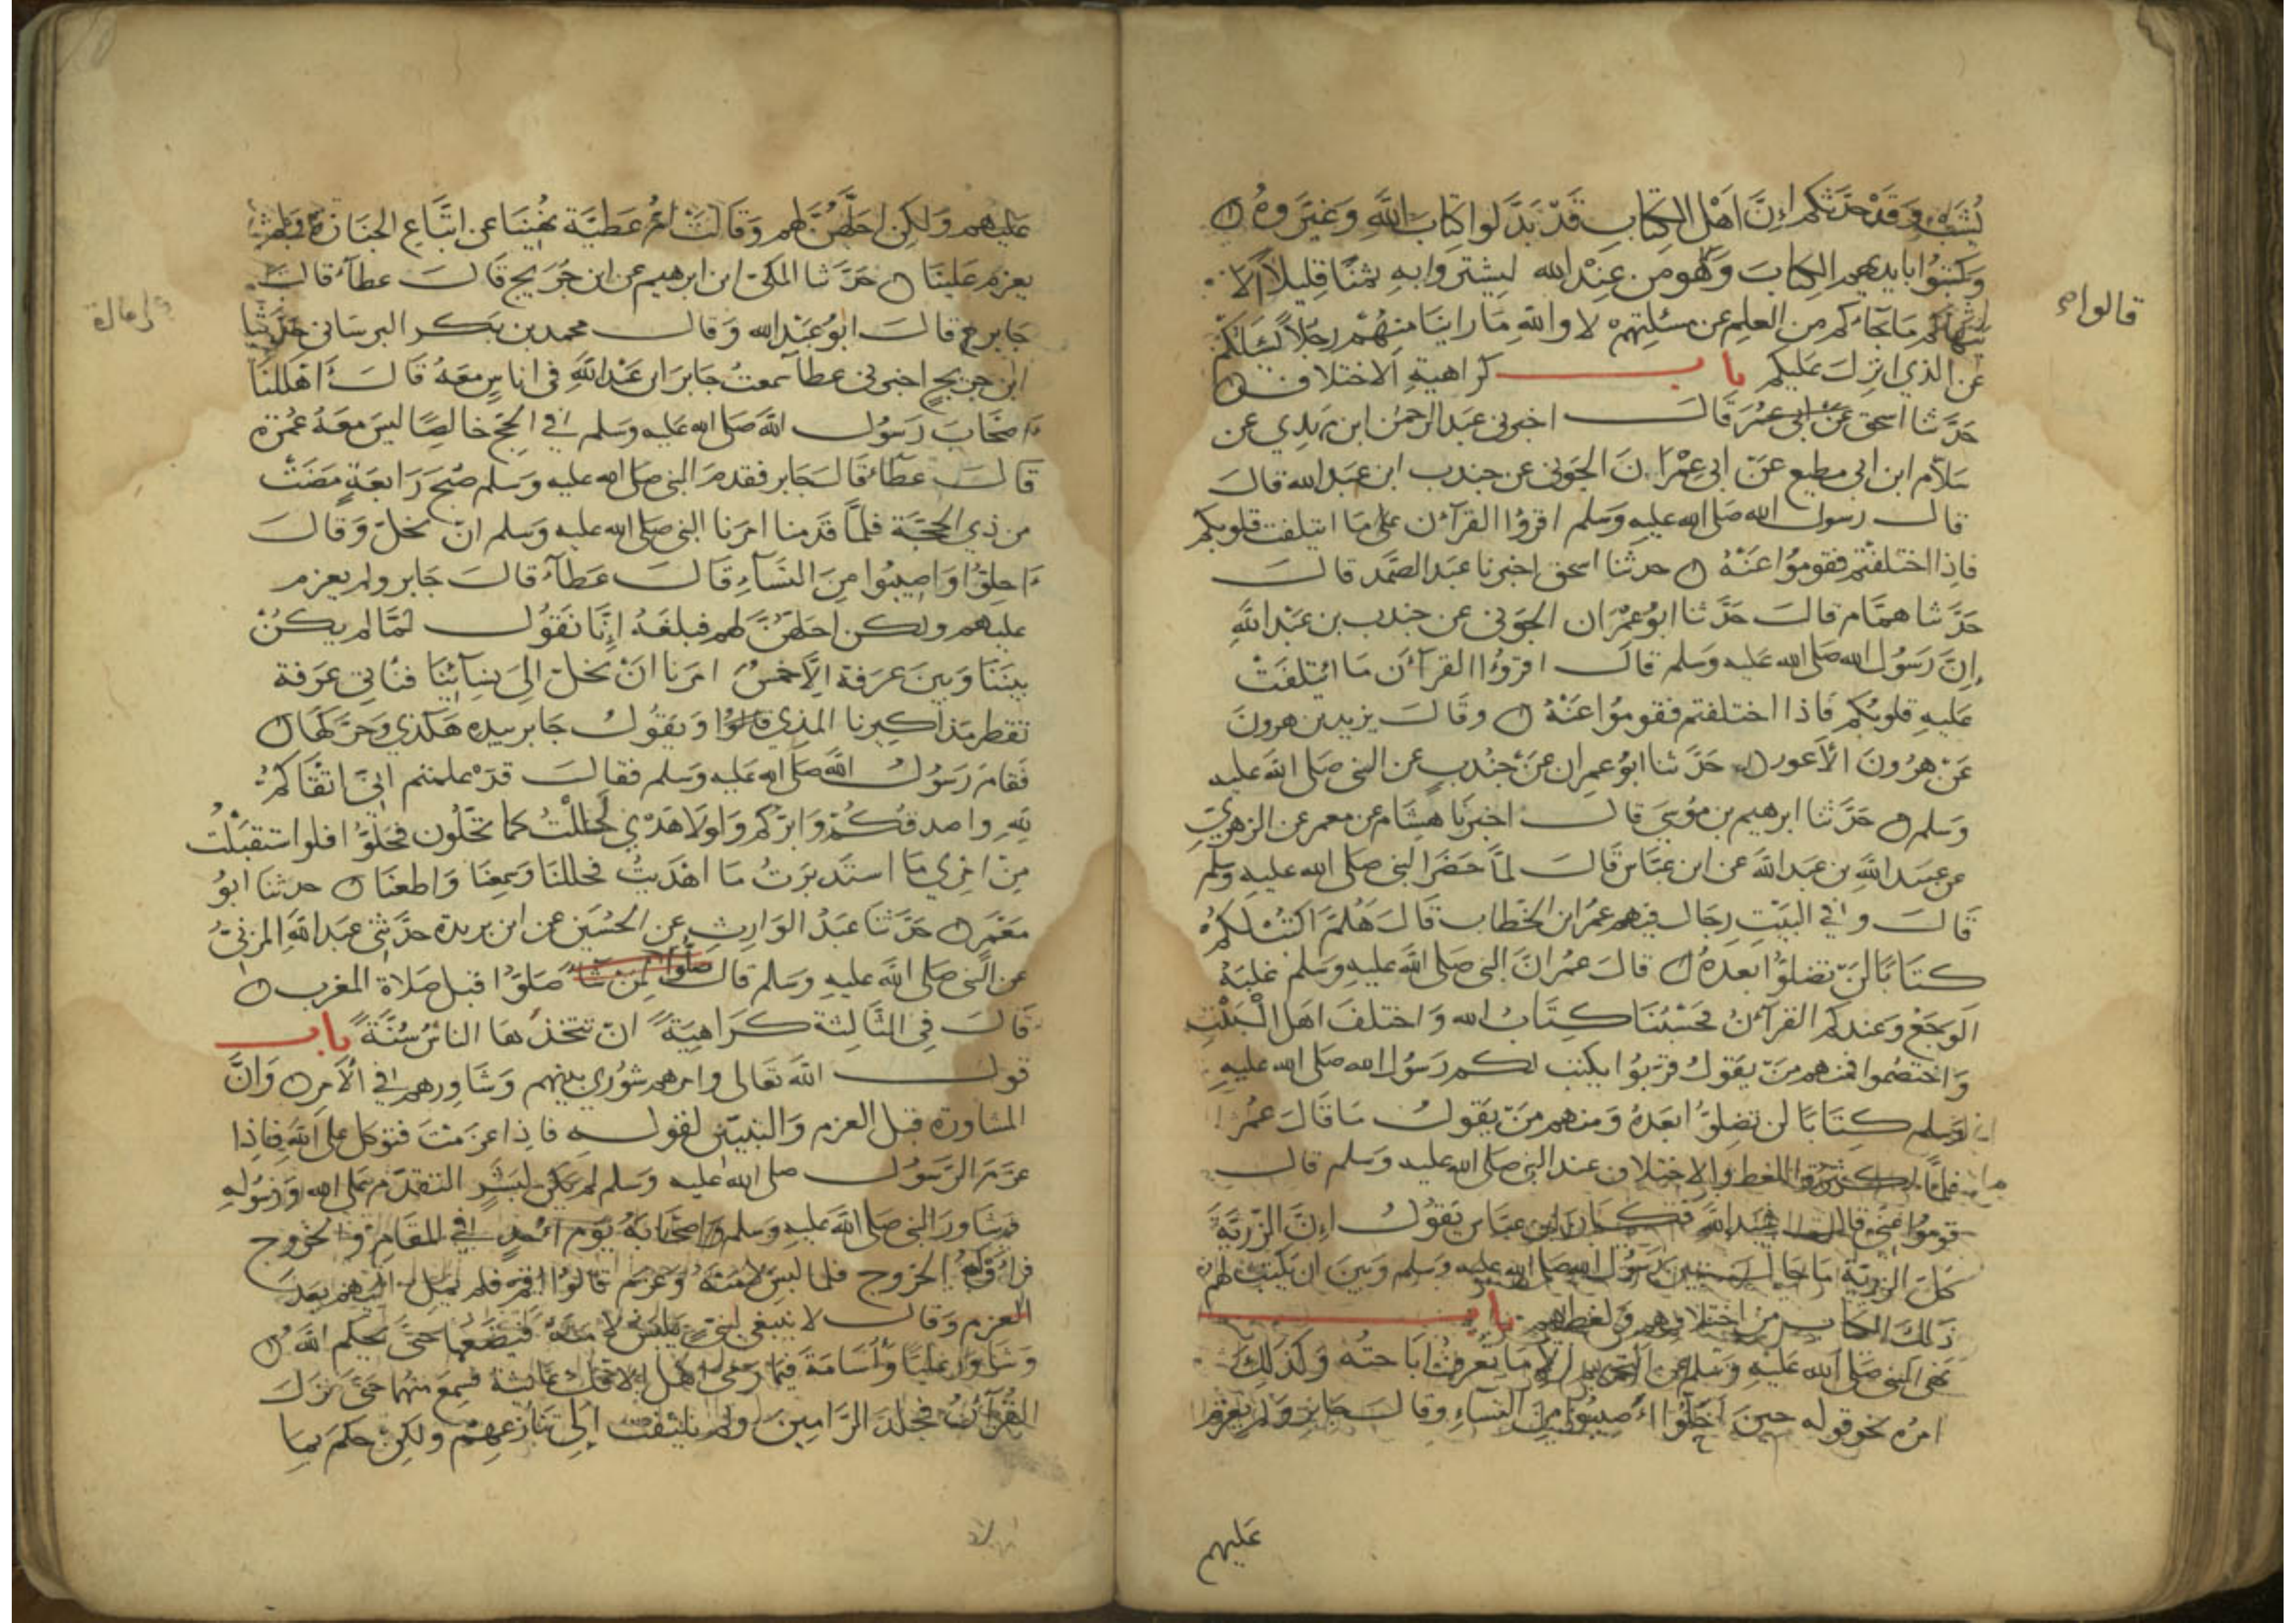 يُشَبْ وَقَدْ حَدَّثَكُم اِنَّ اَهْلَ الكِتَابِ قَدْ بَدَّلوا كِتَابَ اللَّهِ وَغَيَّرَوهُ
وَكتبُوا بايديهم الكِتابَ وَقالوا هُو مَن عِنْدِ الله ليشتروا بهِ ثمنًا قليلاً اَلا
قالوا صح
يَنْهَاكُم مَا جَآءَكُم من العِلمِ عن مسئلتِهِمْ لا واللّهِ مَا راينَا مِنهُمْ رجُلاً يَسْاَلكُمْ
عن الذي انزلَ عَليكم باب كراهيةِ الاختلاف
حَدَّثنَا اسحق عَنْ ابي عمُر قَالَ اخبرني عبد الرحمن ابن مهدي عن
سَلاّم ابن ابي مطيع عَن ابي عِمْرَانَ الجَوني عن جندب ابن عبد الله قالَ
قال رسول الله صَلى الله عَليهِ وَسلم اقرؤُا القرآن عَلى مَا ايتلفت قلوبكم
فاِذا اختلفتم فقومُوا عَنْهُ حدثنا اسحق اخبرنا عبَد الصَّمَد قالَ
حَدَّثنا همَّام قالَ حَدَّثنَا ابوُ عِمْرَان الجَوني عن جندب بن عَبْد اللَّهِ
اِنَّ رَسُولَ الله صَلى الله عَليه وَسلم قالَ اقرؤُا القرآنَ مَا ائتلفَتْ
عَليهِ قلوبُكم فَاذا اختلفتم فقومُوا عَنْهُ وقالَ يزيد بن هرونَ
عَنْ هرُونَ الاَعور حَدَّثنا ابوُ عمران عَنْ جُندُبٍ عن النبي صَلى الله عليه
وَسَلم حَدَّثنا ابرهيم بن موُسَي قالَ اخبرنَا هِشَام عن معمر عن الزهريّ
عن عبيد اللّهِ بن عبد الله عن ابن عبَّاس قَالَ لمَّا حَضَرَ النبي صَلى الله عليهِ وسَلم
قَالَ وفي البَيْتِ رجَال فيهم عمُر ابن الخطاب قَالَ هَلُمَّ اكتُبْ لَكمُ
كتَابًا لَنْ تضِلوُّا بعدهُ قالَ عمُر انَّ النبي صَلى اللّهَ عَليهِ وَسلم غلبَهُ
الوَجَعُ وَعِندَكم القرآنُ فحَسْبُنَا كِتَابُ الله وَاختلفَ اهَل الْبَيْتِ
وَاختصَموا فمنهم مَنْ يَقولُ قرّبُوا يكتب لكم رَسُول الله صَلى الله عَليهِ
وَسَلم كِتَابًا لن تضِلوُّا بعدَهُ وَمنهم مَنْ يَقولُ مَا قَالَ عمُر
فلمَّا اكثرُوا اللغط والاختلاف عند النبي صَلى الله عليه وَسلم قال
قومُوا عَنّي قال عُبيد الله فكَان ابن عبَاس يَقوُل اِنَّ الرّزيّةَ
كلَّ الرزيّة مَا حَالَ بَين رَسُول الله صَلى الله عليه وَسلم وَبَينَ ان يكتبَ لهم
ذلك الكتاب من اختلافهم وَلغطهم باب
نهي النبي صَلى الله عَليهِ وَسلم عن التحريم الا مَا تعرفُ ابَاحتهُ وَكذلِكَ
امرُه نحو قوله حينَ اَحَلّوا اَصِيبُوا مِنَ النِّسَآءِ وَقالَ جَابر وَلم يعزِم
عَليهم
عَليهم وَلكِن احَلَّهُنَّ لهم وَقَالَتْ اُمُّ عَطيَّة نُهِينَا عن اتبَّاع الجنَازة وَلم
يعزم عَلينَا حَدَّثنا المكي ابن ابرهيم عن ابن جُرَيج قَالَ عطآء قَالَ
جَابر ح قالَ ابوُ عبْد الله وَقالَ محمد بن بَكر البرسَاني حَدَّثنا
ابن جريجٍ اخبرني عطآ سمعتُ جَابرَ ابن عَبْد اللَّهِ في اناسٍ معَهُ قَالَ اَهلَلنَا
اَصحَابَ رَسُول اللَّه صَلى الله عليه وَسلم في الحجِّ خالِصًا ليسَ معَهُ عُمْرة
قالَ عطآء قَالَ جَابر فقدم النبي صَلى الله عليه وَسلم صُبْحَ رَابعَةٍ مَضَتْ
من ذِي الحجَّة فلمَّا قَدِمنا امَرَنا النبي صَلى الله عليه وَسلم انْ نحلَّ وَقالَ
اَحِلوُّا وَاصِيبُوا مِنَ النسَآءِ قَالَ عَطآء قالَ جَابر ولم يعزم
عليهم ولكن احَلهُنَّ لهم فبلغَهُ اِنَّا نَقوُل لمَّا لم يكنْ
بينَنا وَبينَ عَرَفة اِلاَّ خمسُ امَرنا انْ نحلّ اِلىَ نسِآئِنَا فنَأتِي عَرَفة
تقطر مَذاكيرنا المذي قالوُا وَيقوُلُ جَابر بيده هَكذي وَحرَّكهَا
فَقامَ رَسُولُ اللَّه صَلى الله عَليه وَسلم فقالَ قَدْ علمتم اَنيِّ اتْقَاكمُ
للّهِ واصدقكُمْ وَابرّكم وَلولا هَدْيي لحَلَلْتُ كما تحَلّون فحَلوُّا فلو استقبَلْتُ
مِنْ امْرِي مَا استدبَرتُ مَا اهْدَيتُ فحللنَا وَسَمِعنَا وَاطعنَا حدثنا ابوُ
معَمَر حَدَّثنَا عبَدُ الوَارِثِ عن الحُسَين عن ابن بريدة حدَّثني عبَد اللّهِ المزنيُّ
عن النبي صَلى اللّه عليهِ وَسَلم قال صَلّوا لمن شَآ صَلوُّا قبل صَلاة المغرب
قَالَ فِي الثَّالِثة لمن شآء كَرَاهِيَةً انْ تتخذَها الناسُ سُنَّةً باب
قول اللّه تَعَالى وامرهم شوُري بينهم وَشَاوِرهم في الاَمر وَانَّ
المشَاورة قبل العزم وَالتبيّن لقولهِ فاِذا عزمْتَ فتوكل عَلى اَللهِ فاِذا
عزَمَ الرسَوُل صلى الله عليه وسَلم لم يَكن لبَشَرٍ التقدّم عَلى الله وَرَسُولِهِ
وَشَاورَ النبي صَلى اللّه عَليهِ وَسلم اصْحَابَهُ يوَم اُحُدٍ في المقَامِ وَالخرُوج
فرَاوْا لهُ الخروج فلما لبِسَ لأمَتَهُ وَعَزم قَالوُا اقِم فلم يمِل اليهم بعدَ
العزم وَقال لا ينبغي لنبيٍّ يَلبَسُ لاَمَتَهُ فيَضَعهَا حَتىَّ يحكم اللّهُ
وَشَاوَر عَليًّا وَاُسَامَةَ فيمَا رَمَى اَهل الاِفك عَائشة فسِمعَ منهُمَا حَتىَّ نزلَ
القُرآنُ فجلَد الرَّامِينَ ولم يلتفت اِلىَ تَنَازعِهِمْ ولكنْ حكم بمَا